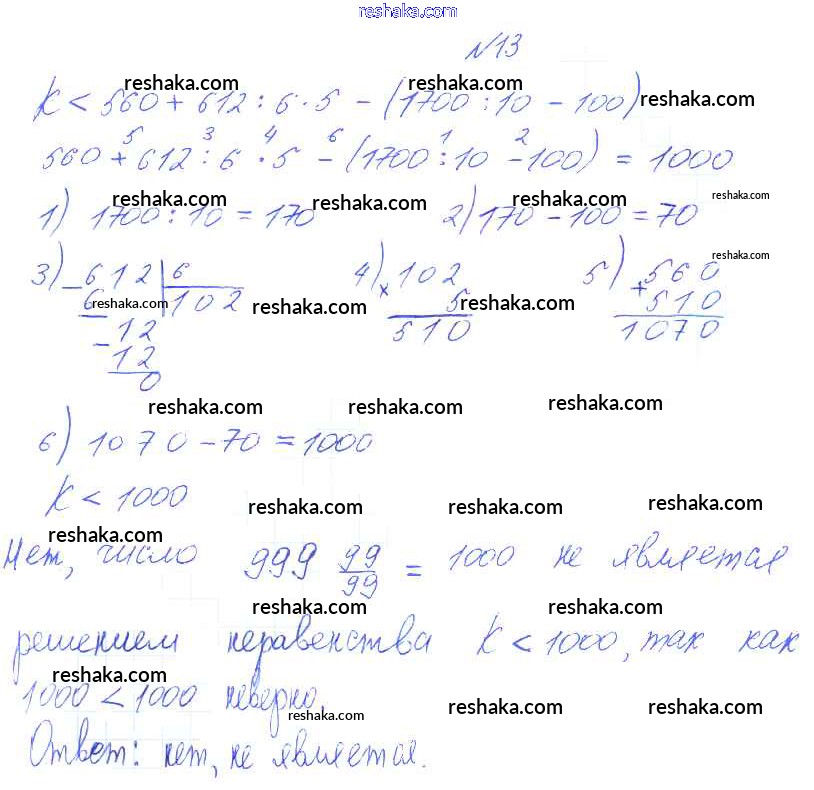 reshaka.com
№13
reshaka.com reshaka.com
K < 560 + 612 : 6 · 5 - (1700 : 10 - 100) reshaka.com
5 3 4 6 1 2
560 + 612 : 6 · 5 - (1700 : 10 - 100) = 1000
reshaka.com reshaka.com reshaka.com reshaka.com
1) 1700 : 10 = 170 2) 170 - 100 = 70
reshaka.com
3) 612 | 6 4) 102 5) 560
- 6 reshaka.com 102 reshaka.com × 5 reshaka.com + 510
- 12 510 1070
12
0
reshaka.com reshaka.com reshaka.com
6) 1070 - 70 = 1000
K < 1000
reshaka.com reshaka.com reshaka.com
reshaka.com
Нет, число 999 99/99 = 1000 не является
reshaka.com reshaka.com
решением неравенства K < 1000, так как
reshaka.com
1000 < 1000 неверно.
reshaka.com reshaka.com reshaka.com
Ответ: нет, не является.